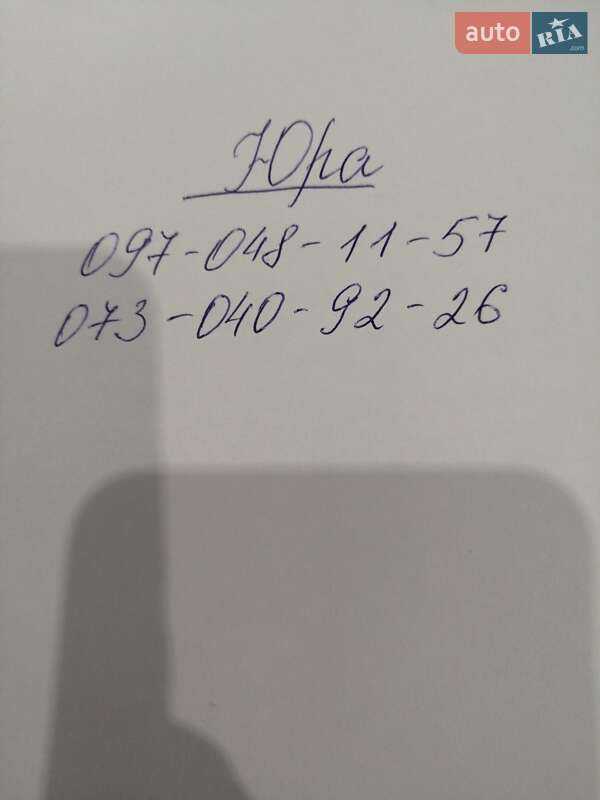 auto RIA .com
Юра
097-048-11-57
073-040-92-26